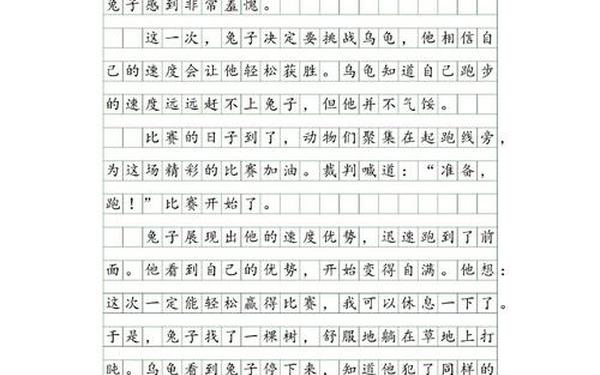 兔子感到非常羞愧。
这一次，兔子决定要挑战乌龟，他相信自
己的速度会让他轻松获胜。乌龟知道自己跑步
的速度远远赶不上兔子，但他并不气馁。
比赛的日子到了，动物们聚集在起跑线旁，
为这场精彩的比赛加油。裁判喊道：“准备，
跑！”比赛开始了。
兔子展现出他的速度优势，迅速跑到了前
面。他看到自己的优势，开始变得自满。他想：
这次一定能轻松赢得比赛，我可以休息一下了。
于是，兔子找了一棵树，舒服地躺在草地上打
盹。乌龟看到兔子停下来，知道他犯了同样的